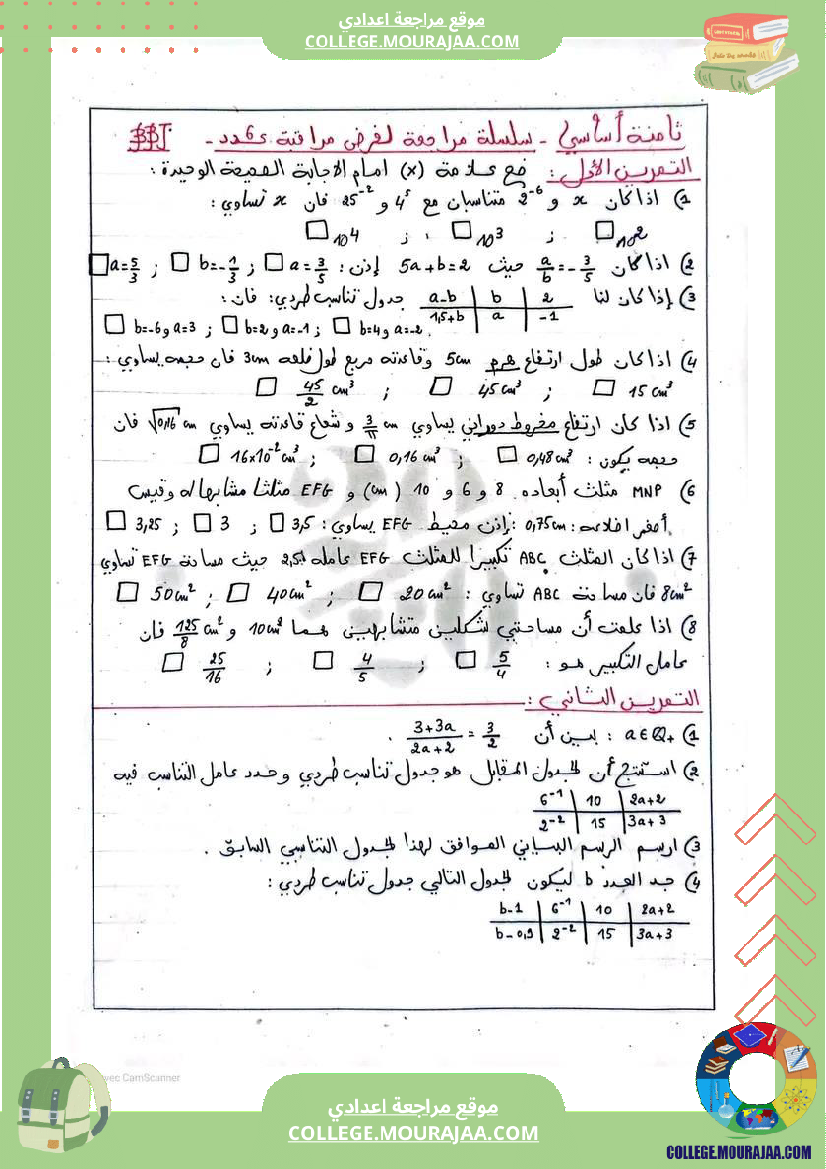 موقع مراجعة اعدادي
COLLEGE.MOURAJAA.COM
ثامنة أساسي - سلسلة مراجعة لفرض مراقبة عدد 6 -
التمرين الأول: ضع علامة (x) امام الاجابة الصحيحة الوحيدة :
1) اذا كان x و 2⁻⁶ متناسبان مع 4⁵ و 25⁻² فان x تساوي :
10² ; 10³ ; 10⁴
2) اذا كان a/b = -3/5 حيث 5a+b=2 إذن : a=3/5 ; b=-1/3 ; a=5/3
3) إذا كان لنا جدول تناسب طردي: فان :
a-b | b | 2
1,5+b | a | -1
b=4 و a=-2 ; b=2 و a=-1 ; b=-6 و a=3
4) اذا كان طول ارتفاع هرم 5cm وقاعدته مربع طول ضلعه 3cm فان حجمه يساوي :
15 cm³ ; 45 cm³ ; 45/2 cm³
5) اذا كان ارتفاع مخروط دوراني يساوي 3/π cm و شعاع قاعدته يساوي √0,16 cm فان
حجمه يكون : 0,48 cm³ ; 0,16 cm³ ; 16x10⁻² cm³
6) MNP مثلث أبعاده 8 و 6 و 10 (cm) و EFG مثلثا مشابها له وقيس
أصغر اضلاعه : 0,75cm : إذن محيط EFG يساوي : 3,5 ; 3 ; 3,25
7) اذا كان المثلث ABC تكبيرا للمثلث EFG عامله 2,5 حيث مساحة EFG تساوي
8cm² فان مساحة ABC تساوي : 20 cm² ; 40 cm² ; 50 cm²
8) اذا علمت أن مساحتي لشكلين متشابهين هما 10 cm² و 125/8 cm² فان
عامل التكبير هو : 5/4 ; 4/5 ; 25/16
التمرين الثاني :
1) a∈ℚ₊ : بين أن (3+3a)/(2a+2) = 3/2 .
2) استنتج أن الجدول المقابل هو جدول تناسب طردي وحدد عامل التناسب فيه
6⁻¹ | 10 | 2a+2
2⁻² | 15 | 3a+3
3) ارسم الرسم البياني الموافق لهذا الجدول التناسبي السابق .
4) جد العدد b ليكون الجدول التالي جدول تناسب طردي :
b-1 | 6⁻¹ | 10 | 2a+2
b-0,9 | 2⁻² | 15 | 3a+3
avec CamScanner
موقع مراجعة اعدادي
COLLEGE.MOURAJAA.COM
COLLEGE.MOURAJAA.COM